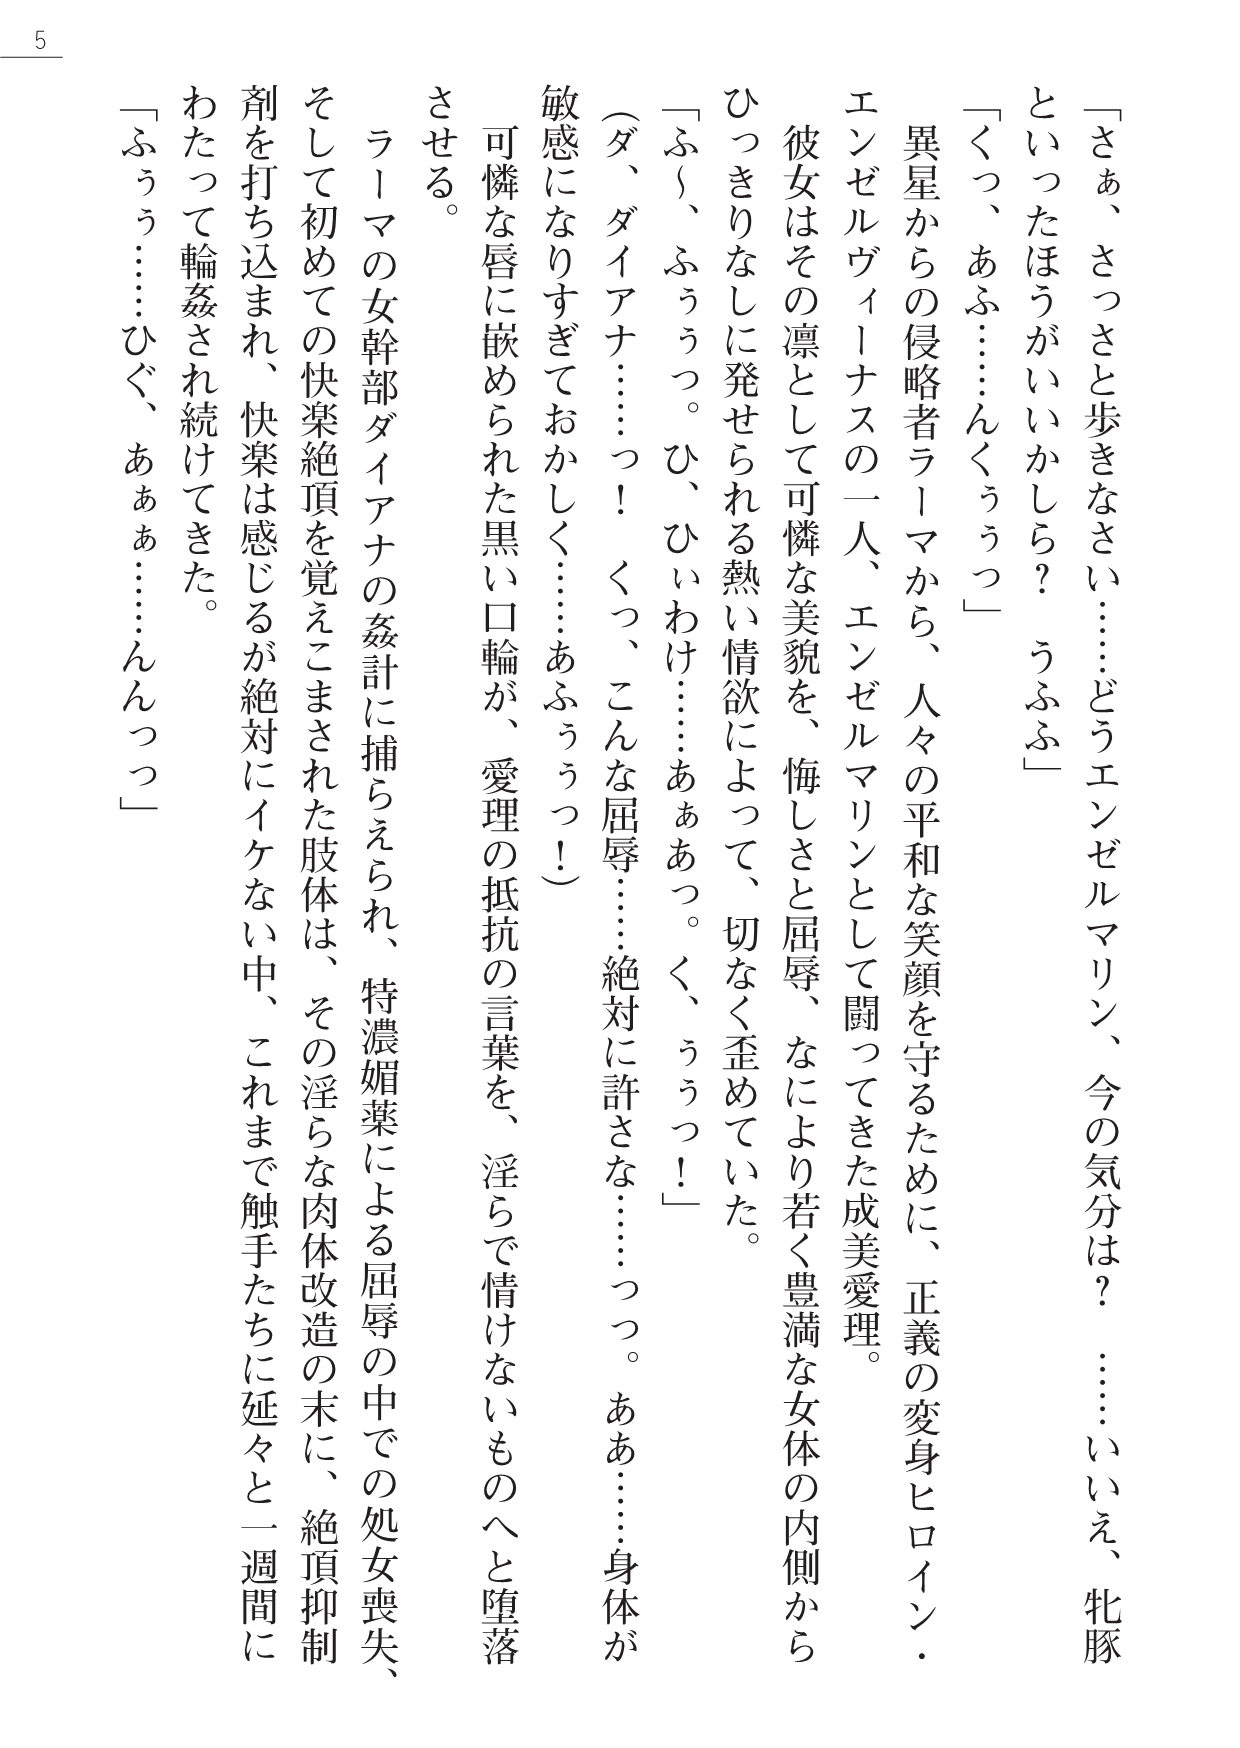 5
「さぁ、さっさと歩きなさい……どうエンゼルマリン、今の気分は？　……いいえ、牝豚
といったほうがいいかしら？　うふふ」
「くっ、あふ……んくぅぅっ」
　異星からの侵略者ラーマから、人々の平和な笑顔を守るために、正義の変身ヒロイン・
エンゼルヴィーナスの一人、エンゼルマリンとして闘ってきた成美愛理。
　彼女はその凛として可憐な美貌を、悔しさと屈辱、なにより若く豊満な女体の内側から
ひっきりなしに発せられる熱い情欲によって、切なく歪めていた。
「ふ～、ふぅぅっ。ひ、ひぃわけ……あぁあっ。く、ぅぅっ！」
（ダ、ダイアナ……っ！　くっ、こんな屈辱……絶対に許さな……っっ。ああ……身体が
敏感になりすぎておかしく……あふぅぅっ！）
　可憐な唇に嵌められた黒い口輪が、愛理の抵抗の言葉を、淫らで情けないものへと堕落
させる。
　ラーマの女幹部ダイアナの姦計に捕らえられ、特濃媚薬による屈辱の中での処女喪失、
そして初めての快楽絶頂を覚えこまされた肢体は、その淫らな肉体改造の末に、絶頂抑制
剤を打ち込まれ、快楽は感じるが絶対にイケない中、これまで触手たちに延々と一週間に
わたって輪姦され続けてきた。
「ふぅぅ……ひぐ、あぁぁ……んんっっ」